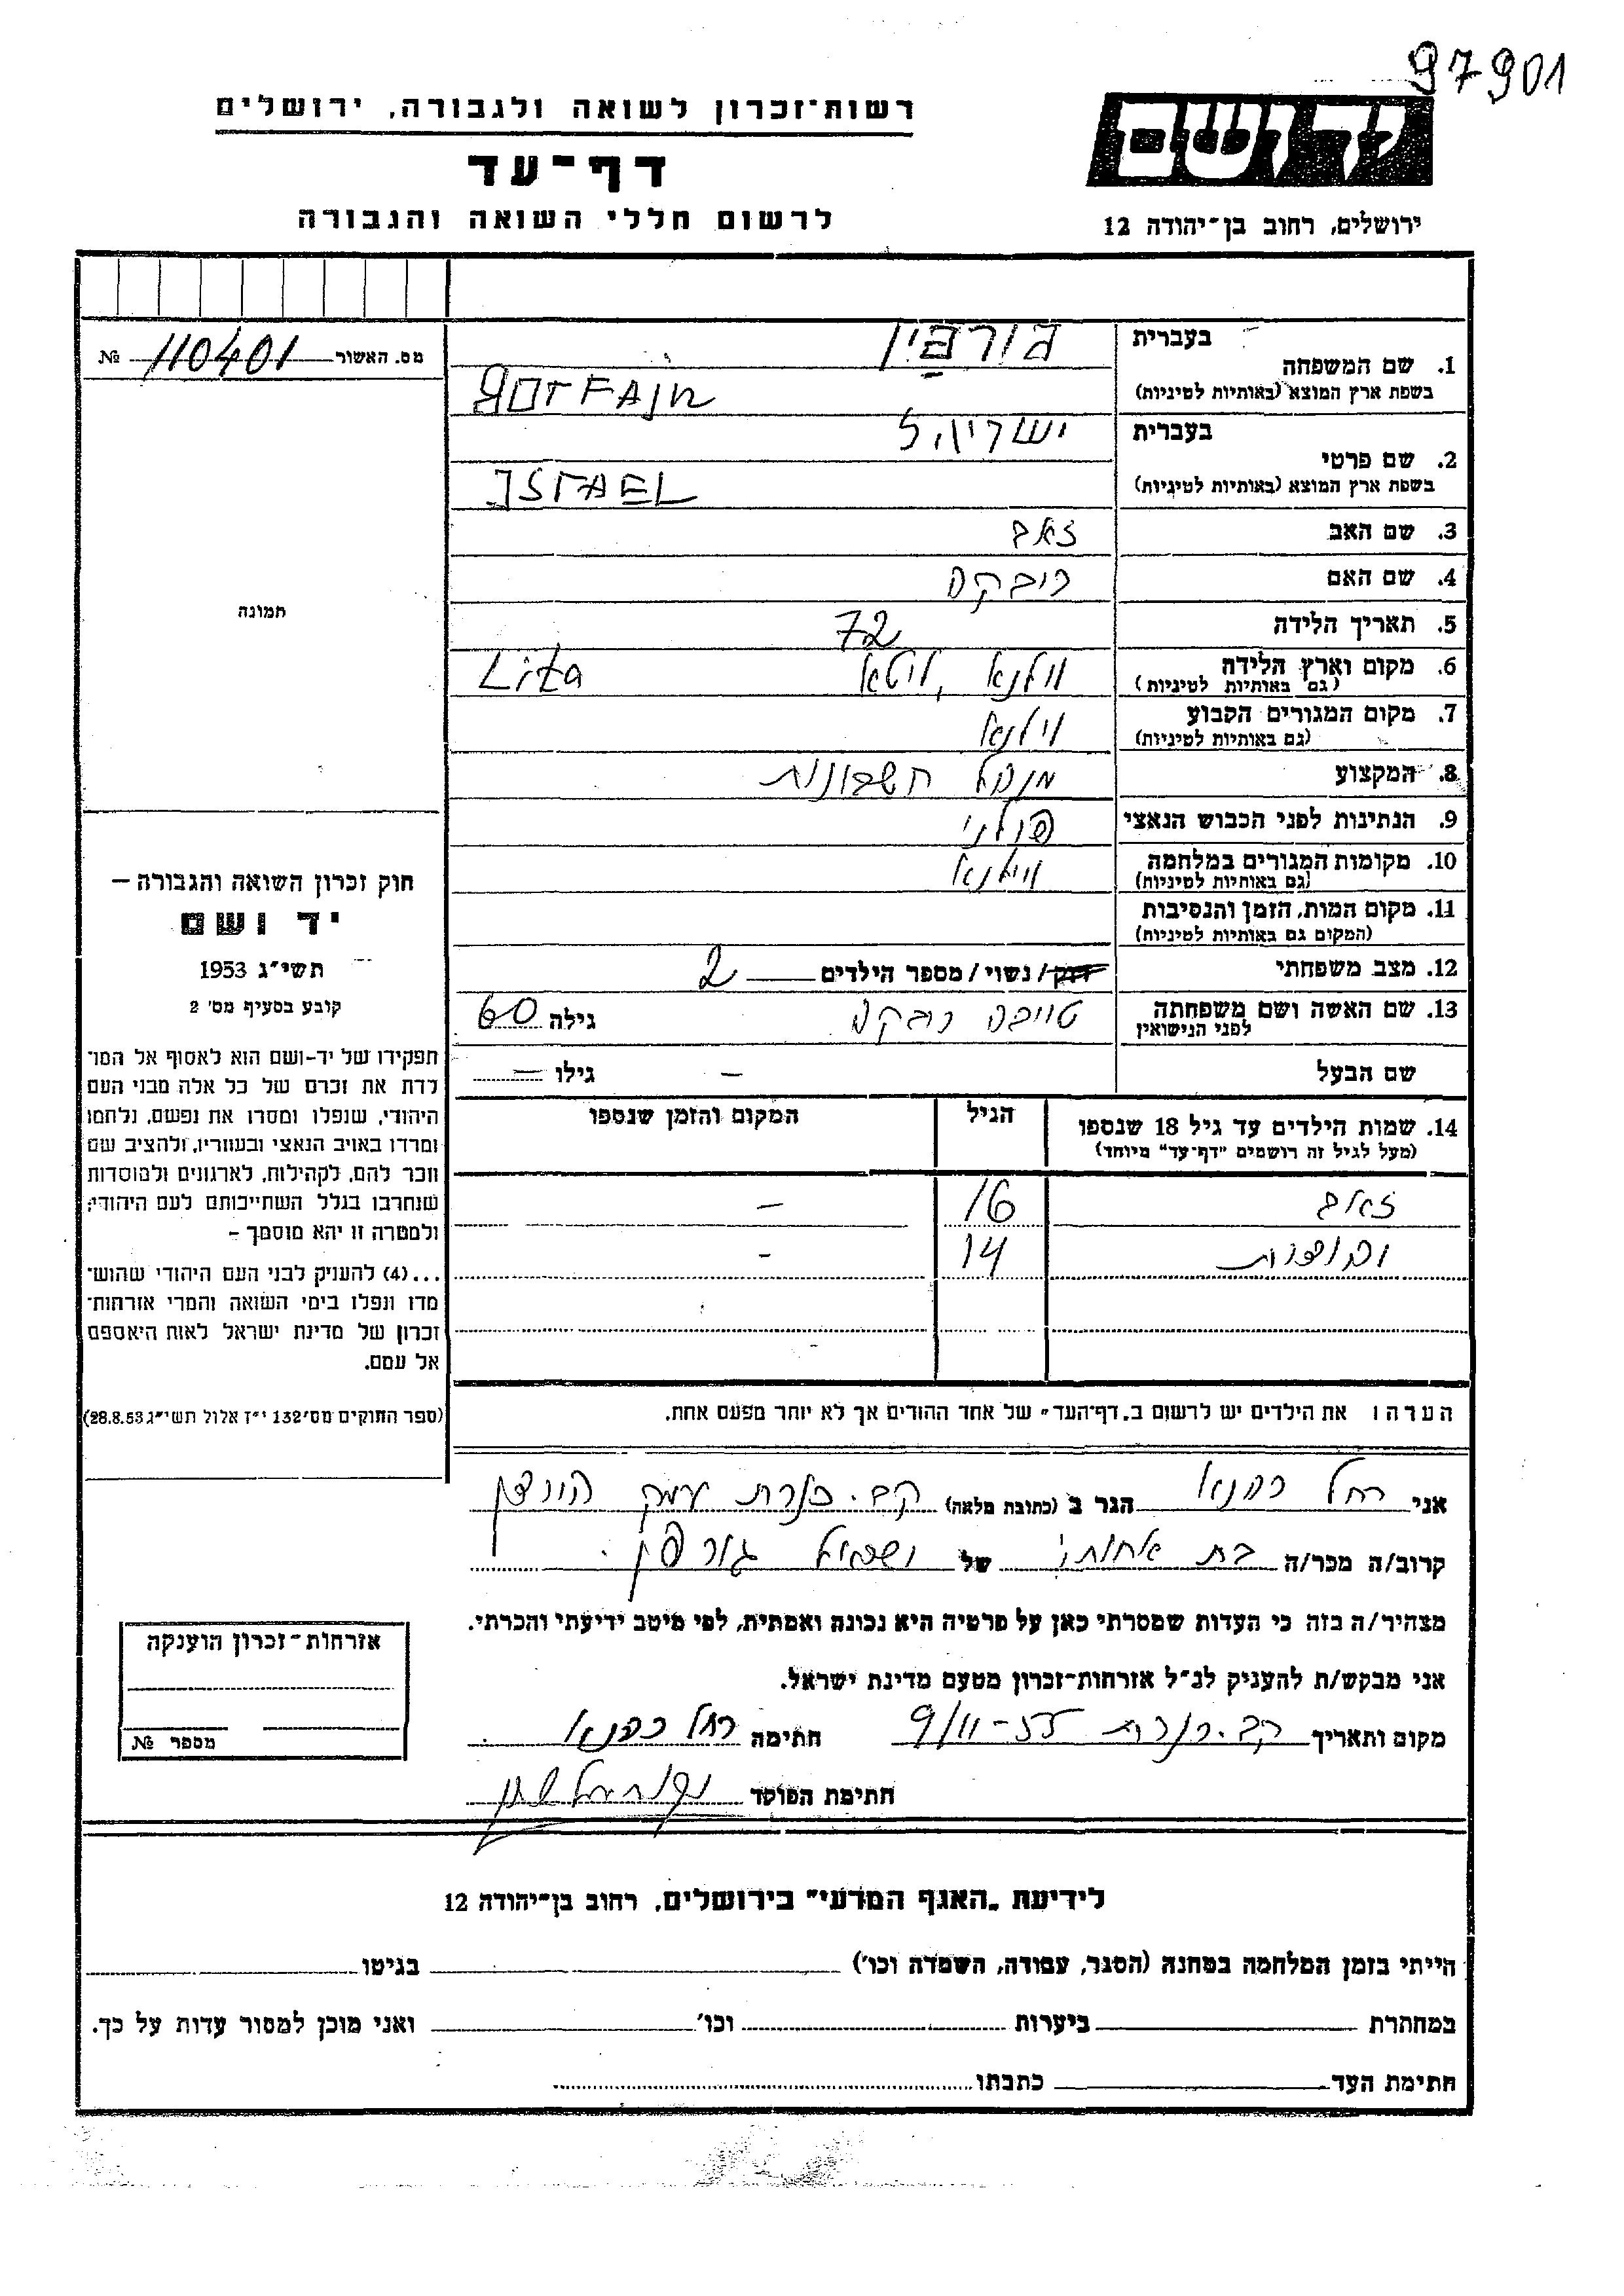 97901
רשות-זכרון לשואה ולגבורה, ירושלים
יד ושם
דף-עד
לרשום חללי השואה והגבורה
ירושלים, רחוב בן-יהודה 12
מס. האשור 110401 №
1. שם המשפחה
בעברית גורפין
בשפת ארץ המוצא (באותיות לטיניות) gorFAJn
2. שם פרטי
בעברית ישראל
בשפת ארץ המוצא (באותיות לטיניות) ISrAEL
3. שם האב זאב
4. שם האם
5. תאריך הלידה 72
6. מקום וארץ הלידה וילנא, ליטא Lita
(גם באותיות לטיניות)
7. מקום המגורים הקבוע וילנא
(גם באותיות לטיניות)
8. המקצוע מנהל חשבונות
9. הנתינות לפני הכבוש הנאצי פולני
10. מקומות המגורים במלחמה וילנא
(גם באותיות לטיניות)
11. מקום המות, הזמן והנסיבות
(המקום גם באותיות לטיניות)
12. מצב משפחתי רווק/ נשוי/ מספר הילדים 2
13. שם האשה ושם משפחתה גילה 60
לפני הנישואין
שם הבעל — גילו —
14. שמות הילדים עד גיל 18 שנספו הגיל המקום והזמן שנספו
(מעל לגיל זה רושמים "דף-עד" מיוחד)
זאב 16 —
14 —
הערה: את הילדים יש לרשום ב„דף-העד" של אחד ההורים אך לא יותר מפעם אחת.
תמונה
חוק זכרון השואה והגבורה —
יד ושם
תשי"ג 1953
קובע בסעיף מס' 2
תפקידו של יד-ושם הוא לאסוף אל המו־
לדת את זכרם של כל אלה מבני העם
היהודי, שנפלו ומסרו את נפשם, נלחמו
ומרדו באויב הנאצי ובעוזריו, ולהציב שם
וזכר להם, לקהילות, לארגונים ולמוסדות
שנחרבו בגלל השתייכותם לעם היהודי;
ולמטרה זו יהא מוסמך –
...(4) להעניק לבני העם היהודי שהוש־
מדו ונפלו בימי השואה והמרי אזרחות־
זכרון של מדינת ישראל לאות היאספם
אל עמם.
(ספר החוקים מס' 132 י"ז אלול תשי"ג 28.8.53)
אני רחל כהנא הגר ב (כתובת מלאה) קב. כנרת עמק הירדן
קרוב/ה מכר/ה בת אחותו של ישראל גורפין.
מצהיר/ה בזה כי העדות שמסרתי כאן על פרטיה היא נכונה ואמתית, לפי מיטב ידיעתי והכרתי.
אני מבקש/ת להעניק לנ"ל אזרחות-זכרון מטעם מדינת ישראל.
מקום ותאריך קב. כנרת 9/11-55 חתימה רחל כהנא
חתימת הפוקד
אזרחות-זכרון הוענקה
מספר №
לידיעת „האגף המדעי" בירושלים, רחוב בן-יהודה 12
הייתי בזמן המלחמה במחנה (הסגר, עבודה, השמדה וכו') בגיטו
במחתרת ביערות וכו' ואני מוכן למסור עדות על כך.
חתימת העד כתבתו